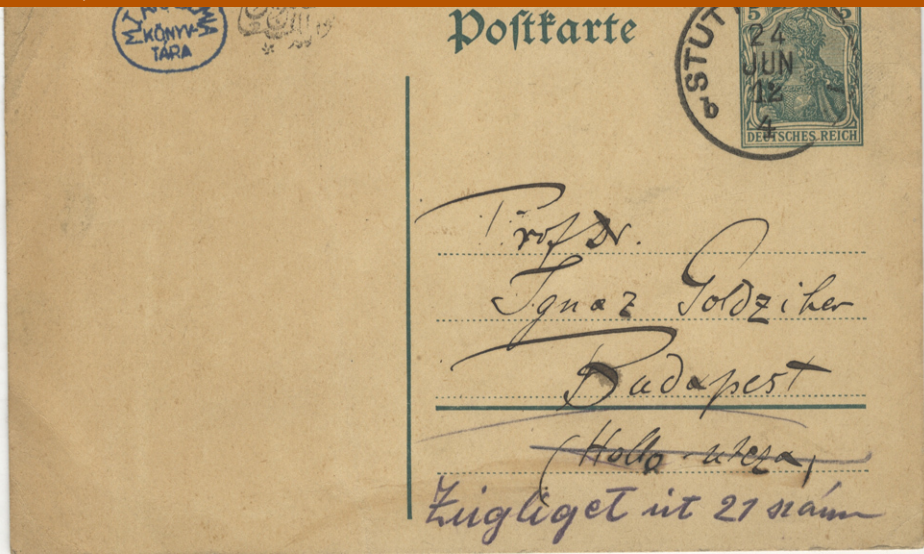 KÖNYV-
TÁRA
Postkarte
STUT
24
JUN
12
4
b
5 5
DEUTSCHES REICH
Prof Dr.
Ignaz Goldziher
Budapest
(Holló-utcza)
Zugliget út 21 szám